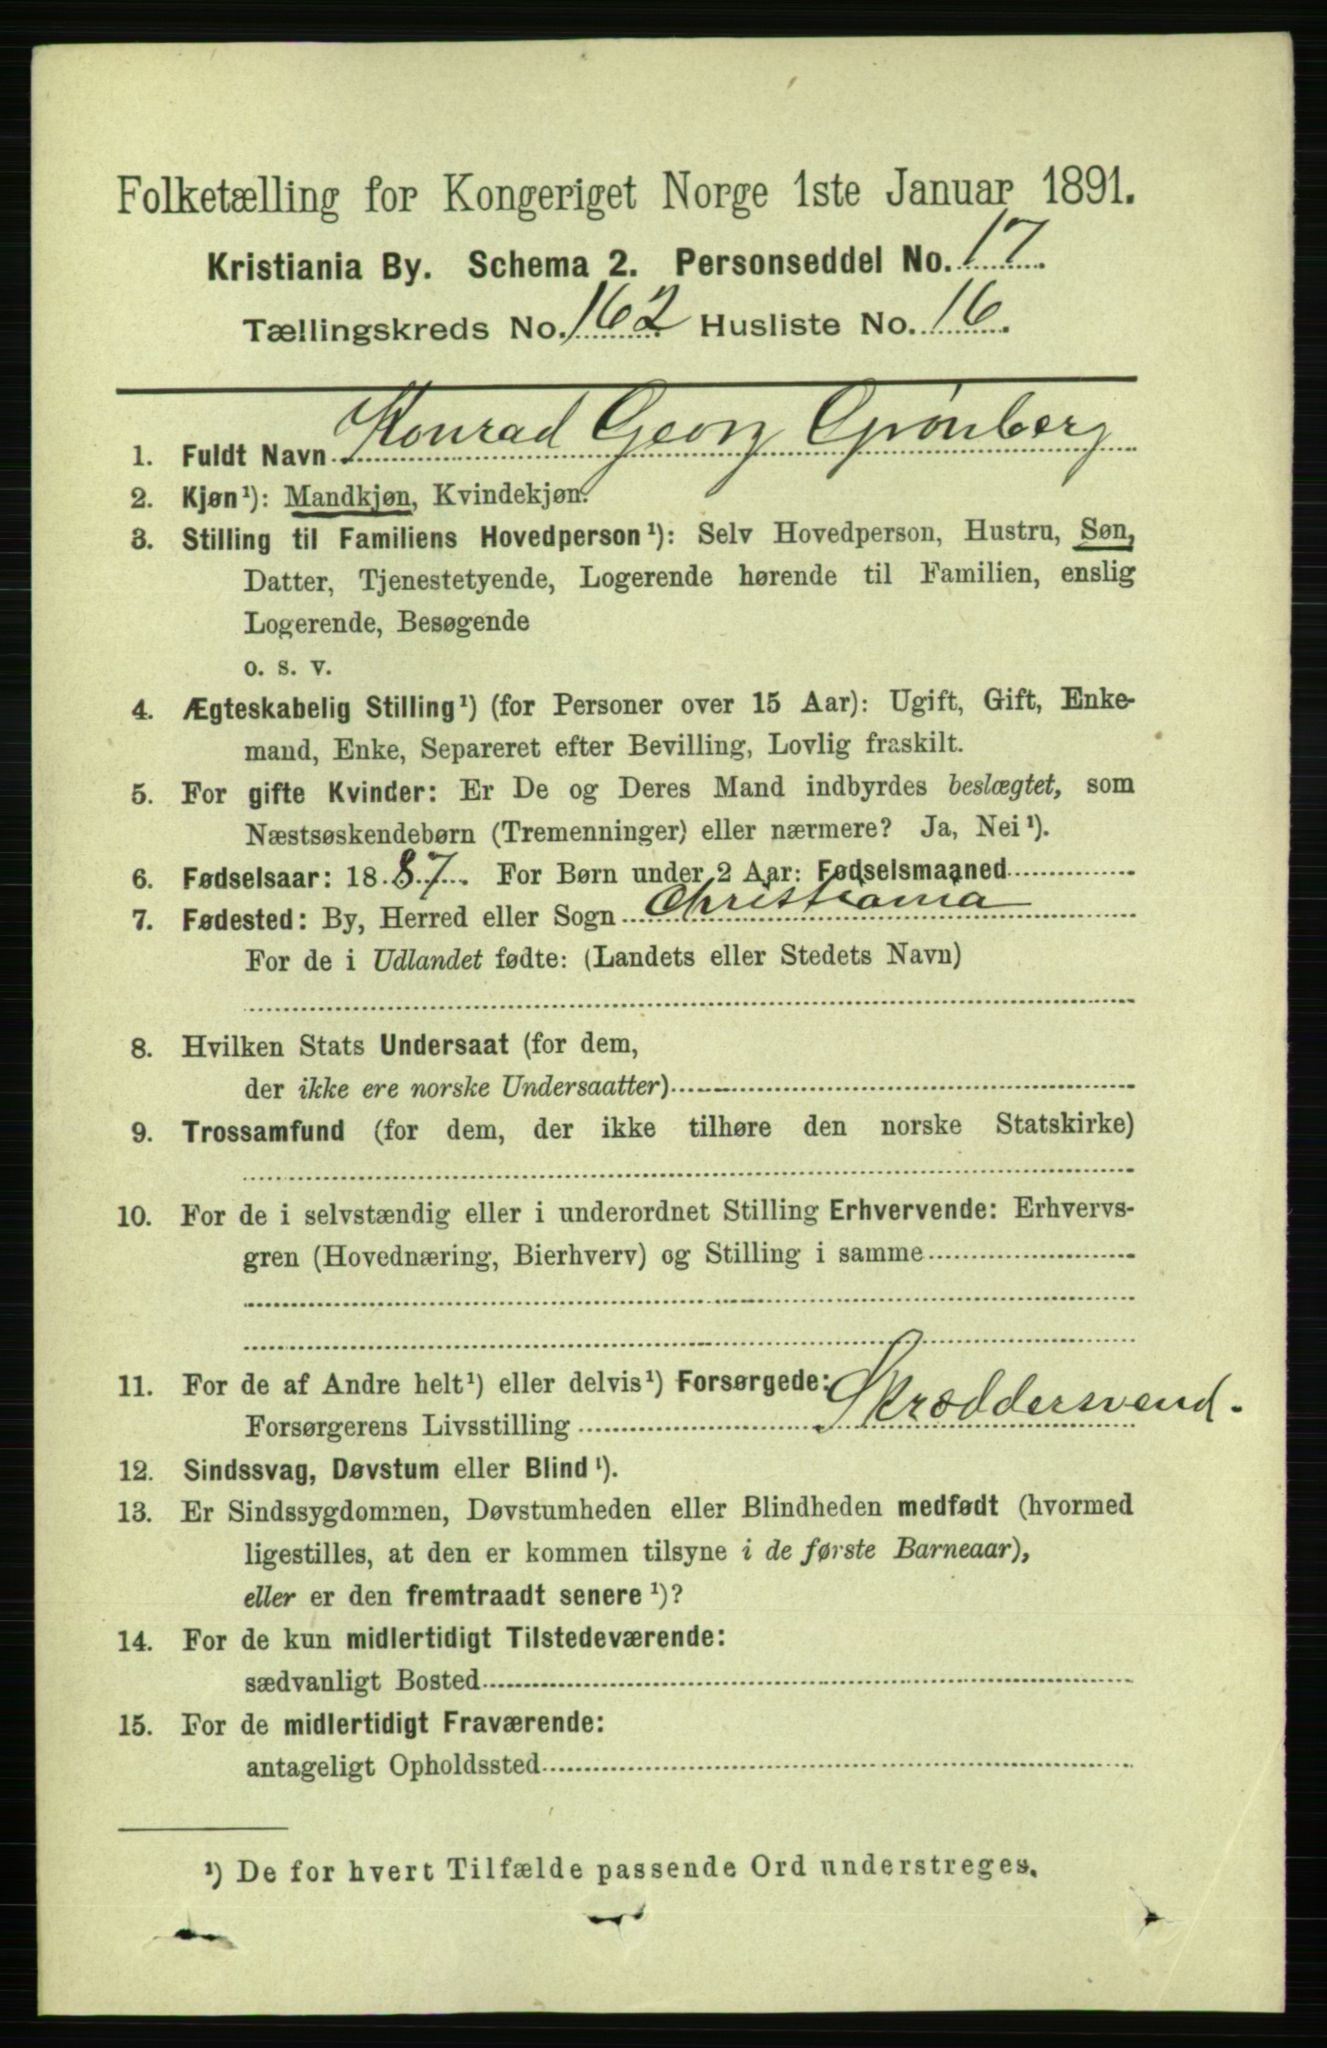 Folketælling for Kongeriget Norge 1ste Januar 1891.
Kristiania By. Schema 2. Personseddel No. 17.
Tællingskreds No. 162 Husliste No. 16.
1. Fuldt Navn Konrad Georg Grönberg
2. Kjøn¹): Mandkjøn, Kvindekjøn.
3. Stilling til Familiens Hovedperson¹): Selv Hovedperson, Hustru, Søn,
Datter, Tjenestetyende, Logerende hørende til Familien, enslig
Logerende, Besøgende
o. s. v.
4. Ægteskabelig Stilling¹) (for Personer over 15 Aar): Ugift, Gift, Enke-
mand, Enke, Separeret efter Bevilling, Lovlig fraskilt.
5. For gifte Kvinder: Er De og Deres Mand indbyrdes beslægtet, som
Næstsøskendebørn (Tremenninger) eller nærmere? Ja, Nei¹).
6. Fødselsaar: 1887. For Børn under 2 Aar: Fødselsmaaned
7. Fødested: By, Herred eller Sogn Christiania
For de i Udlandet fødte: (Landets eller Stedets Navn)
8. Hvilken Stats Undersaat (for dem,
der ikke ere norske Undersaatter)
9. Trossamfund (for dem, der ikke tilhøre den norske Statskirke)
10. For de i selvstændig eller i underordnet Stilling Erhvervende: Erhvervs-
gren (Hovednæring, Bierhverv) og Stilling i samme
11. For de af Andre helt¹) eller delvis¹) Forsørgede:
Forsørgerens Livsstilling Skræddersvend.
12. Sindssvag, Døvstum eller Blind¹).
13. Er Sindssygdommen, Døvstumheden eller Blindheden medfødt (hvormed
ligestilles, at den er kommen tilsyne i de første Barneaar),
eller er den fremtraadt senere¹)?
14. For de kun midlertidigt Tilstedeværende:
sædvanligt Bosted
15. For de midlertidigt Fraværende:
antageligt Opholdssted
¹) De for hvert Tilfælde passende Ord understreges.